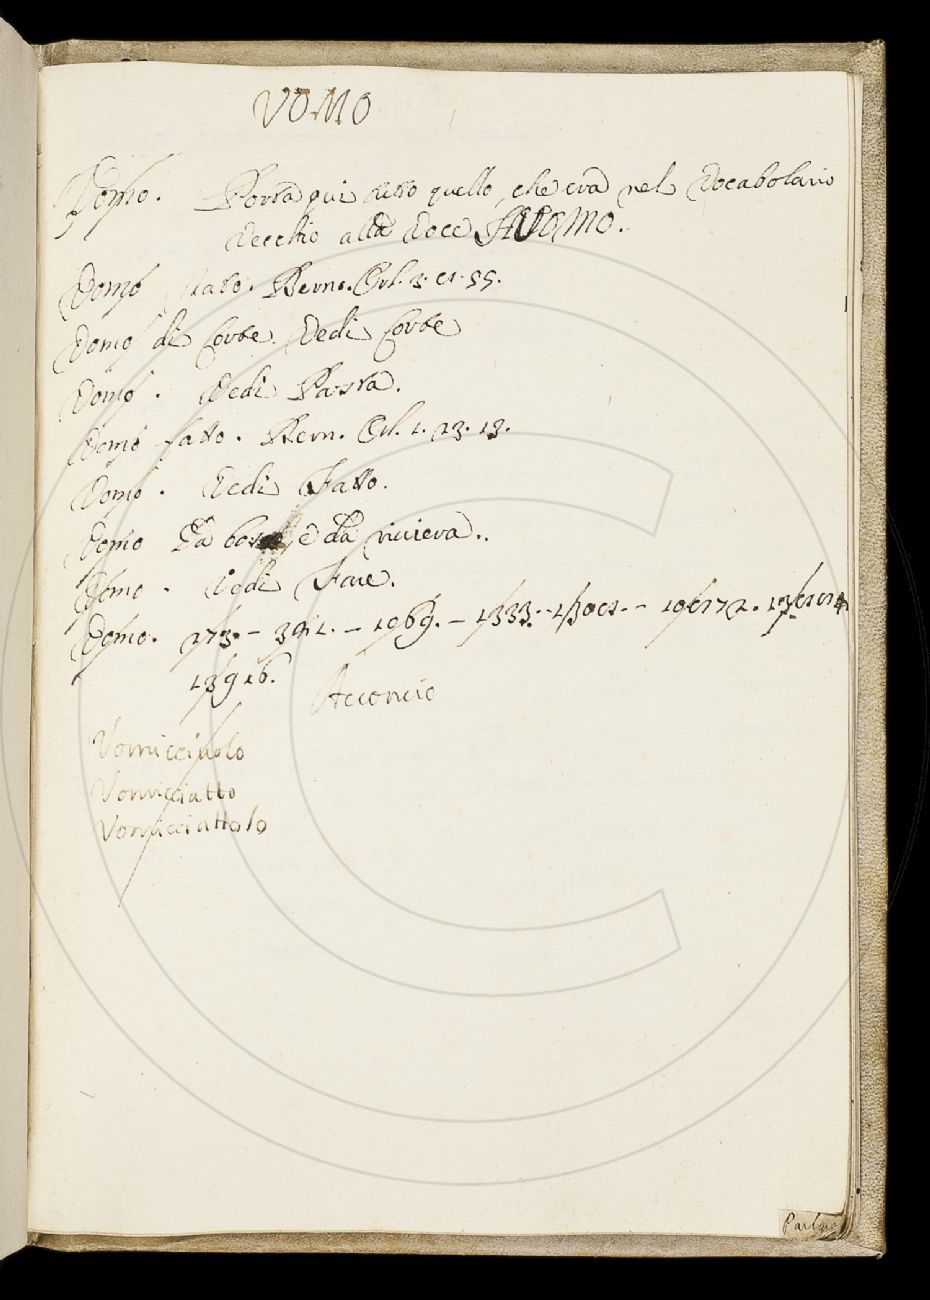 VOMO
Vomo. Porta qui tutto quello che era nel Vocabolario
Vecchio alla Voce HVOMO.
Vomo nato. Berno. Orl. 3. 55.
Vomo di Corte. Vedi Corte
Vomo. Vedi Pasta.
Vomo fatto. Bern. Orl. 1. 23. 13.
Vomo. Vedi Fatto.
Vomo Da bosco, e da riviera.
Vomo. Vedi Fare.
Vomo. 273. - - 1969. - 1333. -
13916. Acconcio
Vomicciuolo
Vomicciatto
Vomicciattolo